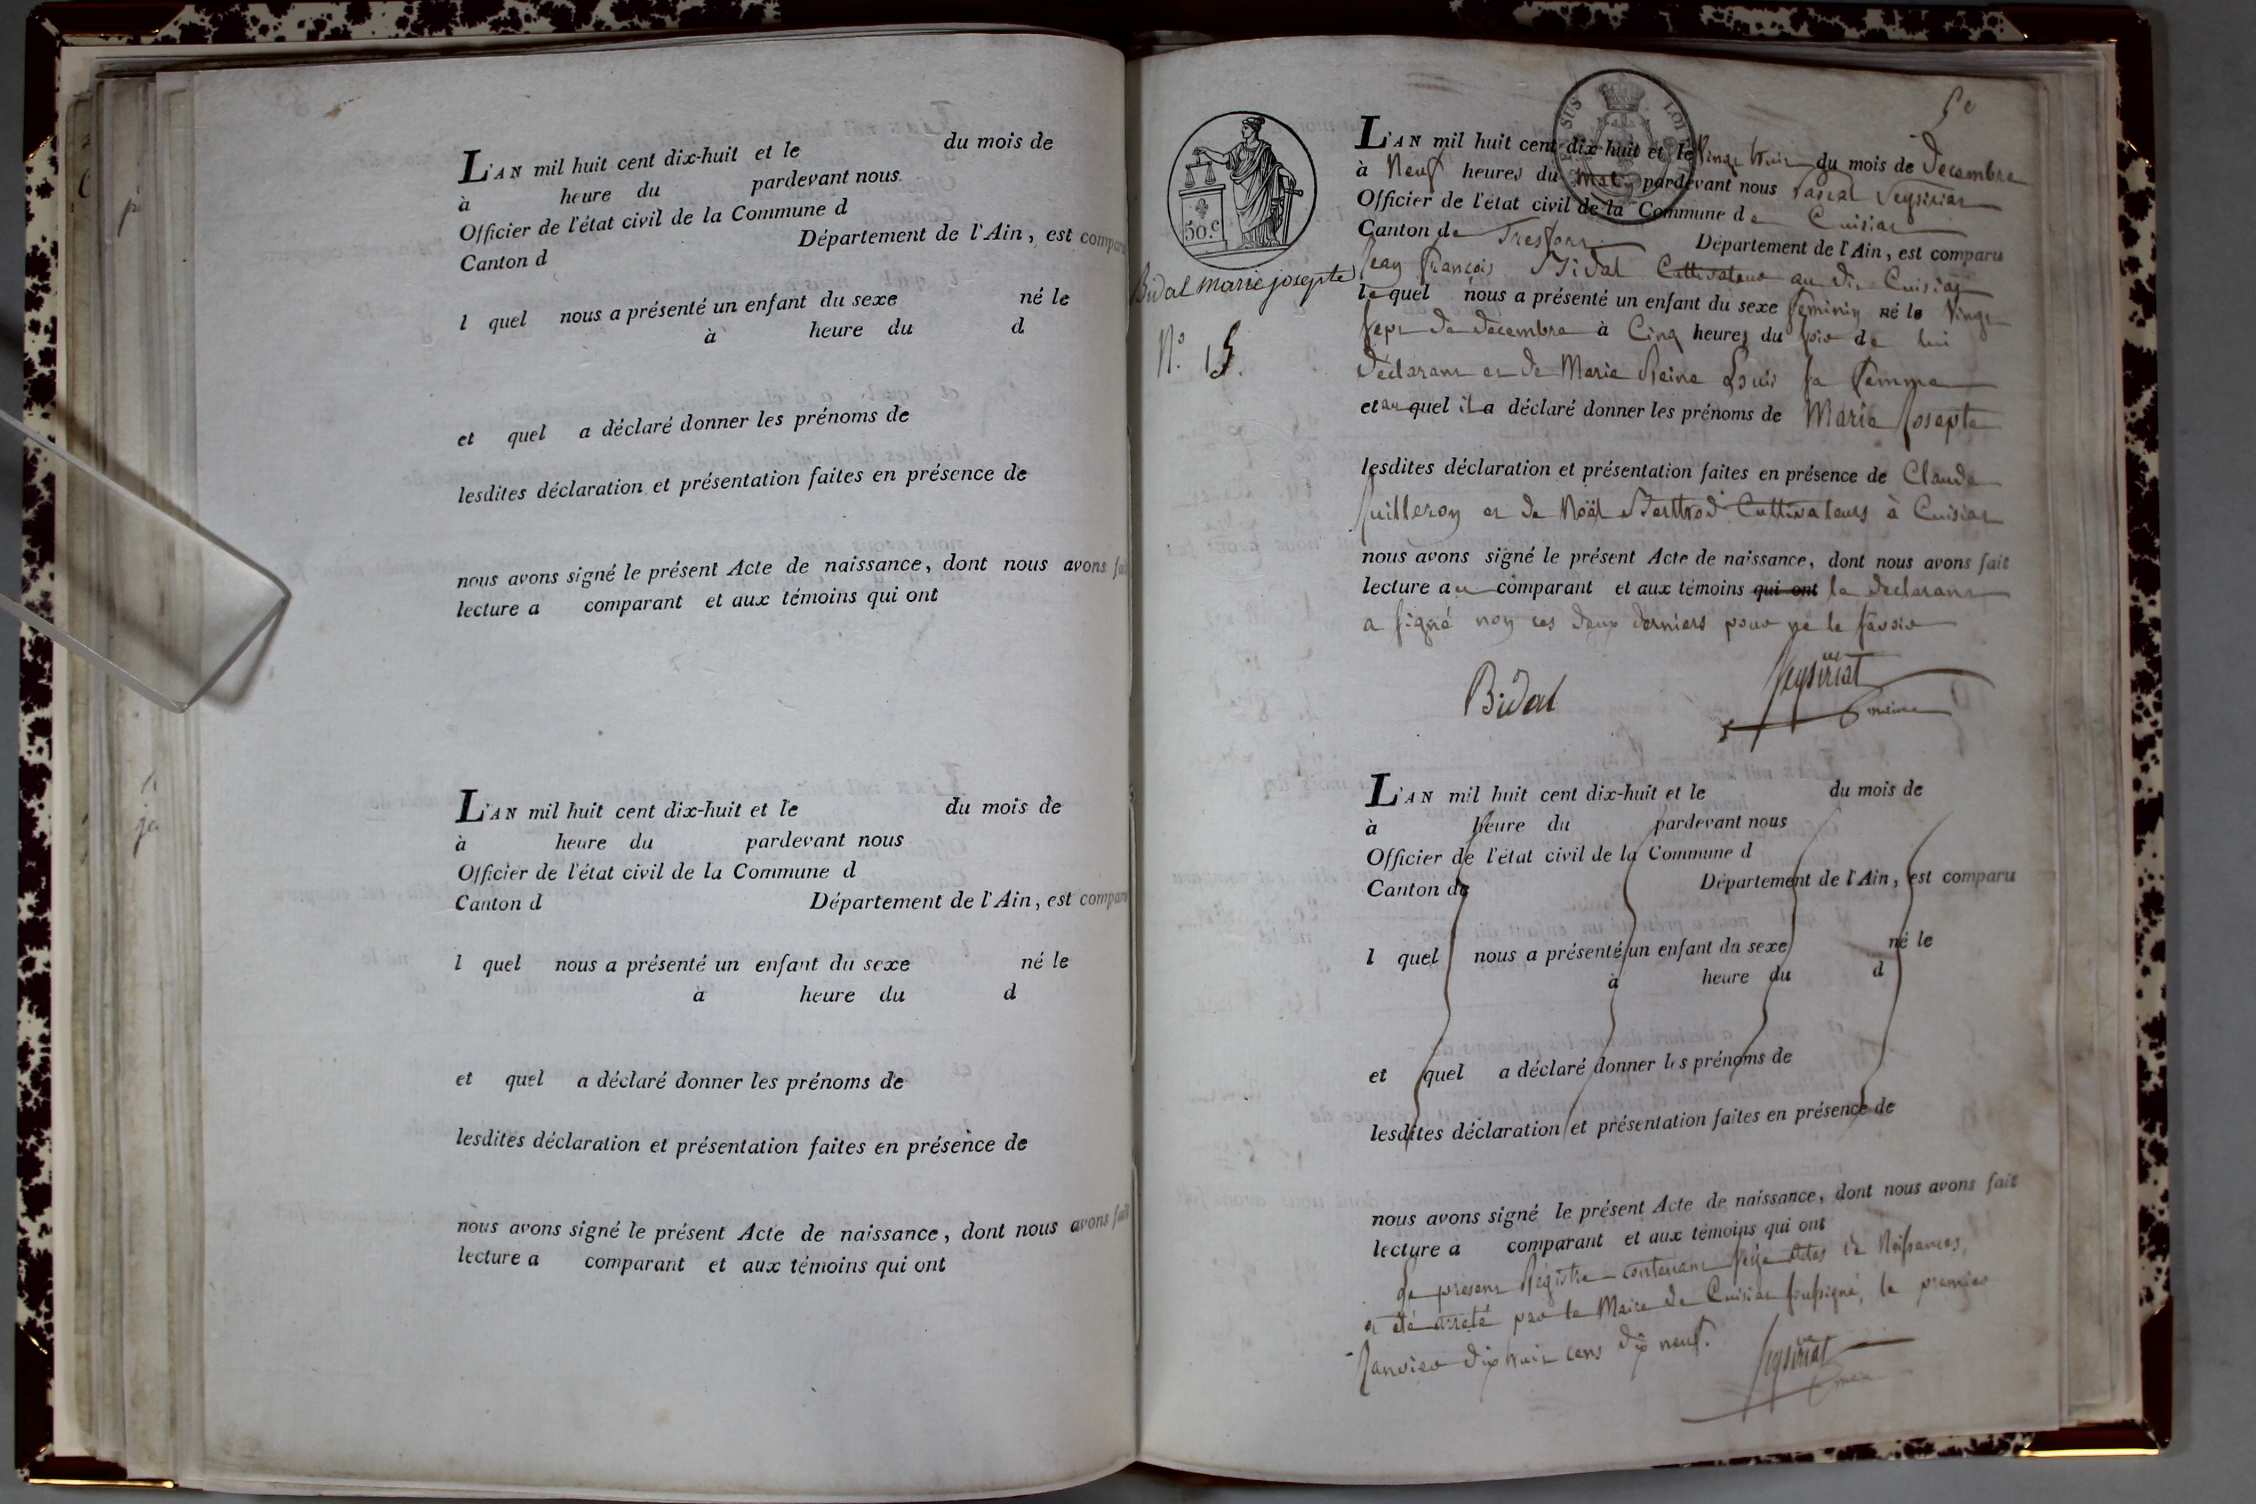 L'AN mil huit cent dix-huit et le du mois de
à heure du pardevant nous
Officier de l'état civil de la Commune d
Canton d Département de l'Ain, est comparu
l quel nous a présenté un enfant du sexe né le
à heure du d
et quel a déclaré donner les prénoms de
lesdites déclaration et présentation faites en présence de
nous avons signé le présent Acte de naissance, dont nous avons fait
lecture a comparant et aux témoins qui ont
L'AN mil huit cent dix-huit et le du mois de
à heure du pardevant nous
Officier de l'état civil de la Commune d
Canton d Département de l'Ain, est comparu
l quel nous a présenté un enfant du sexe né le
à heure du d
et quel a déclaré donner les prénoms de
lesdites déclaration et présentation faites en présence de
nous avons signé le présent Acte de naissance, dont nous avons fait
lecture a comparant et aux témoins qui ont
50.c
Bidal marie josepte
N.o 15.
L'AN mil huit cent dix-huit et le Vingt huit du mois de Decembre
à Neuf heures du mat. pardevant nous Pascal Veysiriat
Officier de l'état civil de la Commune de Cuisiat
Canton de Tresfort Département de l'Ain, est comparu
Jean francois Bidal Cultivateur au dit Cuisiat
le quel nous a présenté un enfant du sexe feminin né le Vingt
sept de decembre à Cinq heures du soir de lui
déclarant et de Marie Reine Louis sa femme
et au quel il a déclaré donner les prénoms de Marie Josepte
lesdites déclaration et présentation faites en présence de Claude
Guilleron et de Noël Berthod Cultivateurs à Cuisiat
nous avons signé le présent Acte de naissance, dont nous avons fait
lecture au comparant et aux témoins qui ont le declarant
a signé non ces deux derniers pour ne le savoir
Bidal Veysiriat
maire
L'AN mil huit cent dix-huit et le du mois de
à heure du pardevant nous
Officier de l'état civil de la Commune d
Canton de Département de l'Ain, est comparu
l quel nous a présenté un enfant du sexe né le
à heure du d
et quel a déclaré donner les prénoms de
lesdites déclaration et présentation faites en présence de
nous avons signé le présent Acte de naissance, dont nous avons fait
lecture a comparant et aux témoins qui ont
Le present Régistre contenant seize Actes de Naissances,
a été arreté par le Maire de Cuisiat soussigné, le premier
Janvier dix huit cens dix neuf.
Veysiriat
maire